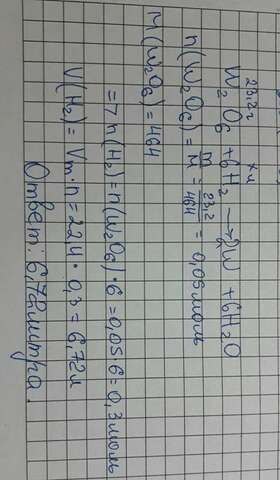 23,2г хл
W₂O₆ + 6H₂ → 2W + 6H₂O
n(W₂O₆) = m/M = 23,2/464 = 0,05моль
M(W₂O₆) = 464
=> n(H₂) = n(W₂O₆) · 6 = 0,05 · 6 = 0,3моль
V(H₂) = Vm · n = 22,4 · 0,3 = 6,72л
Ответ: 6,72литра.